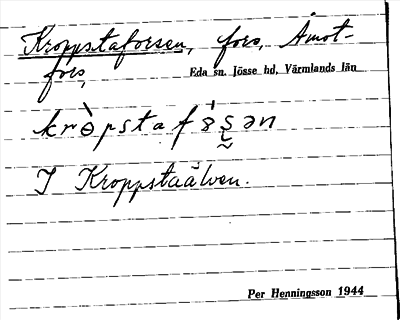 Kroppstaforsen, fors, Åmot-
fors,
Eda sn. Jösse hd, Värmlands län
krɵ̀pstafɞ́ʂən
I Kroppstaälven.
Per Henningsson 1944